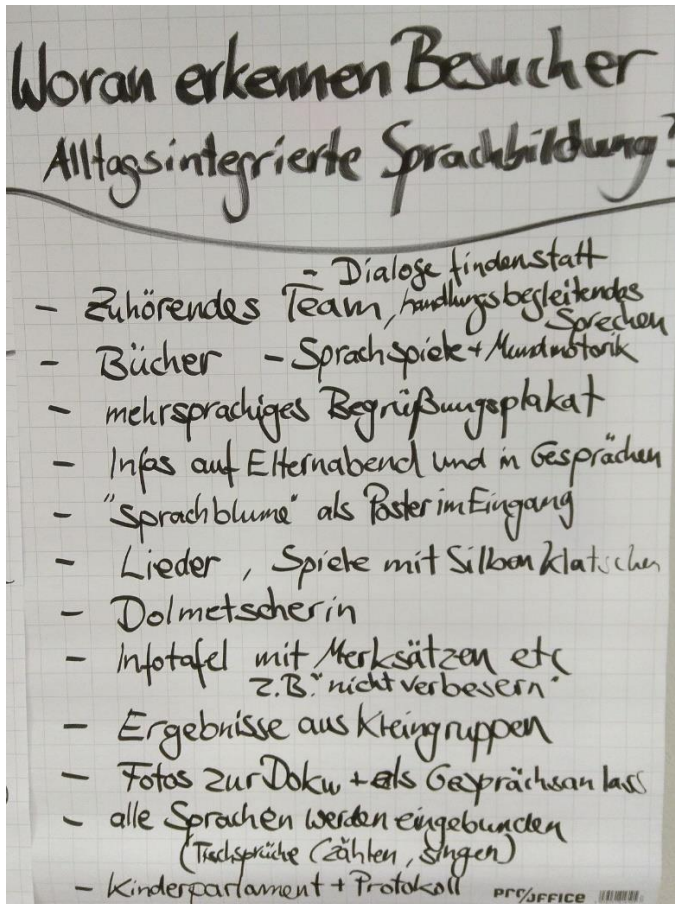 Woran erkennen Besucher
Alltagsintegrierte Sprachbildung?
- Dialoge finden statt
- Zuhörendes Team, handlungsbegleitendes
Sprechen
- Bücher - Sprachspiele + Mundmotorik
- mehrsprachiges Begrüßungsplakat
- Infos auf Elternabend und in Gesprächen
- "Sprachblume" als Poster im Eingang
- Lieder, Spiele mit Silben klatschen
- Dolmetscherin
- Infotafel mit Merksätzen etc
z.B. "nicht verbesern"
- Ergebnisse aus Kleingruppen
- Fotos zur Doku + als Gesprächsanlass
- alle Sprachen werden eingebunden
(Tischsprüche (zählen, singen)
- Kinderparlament + Protokoll PRO/OFFICE